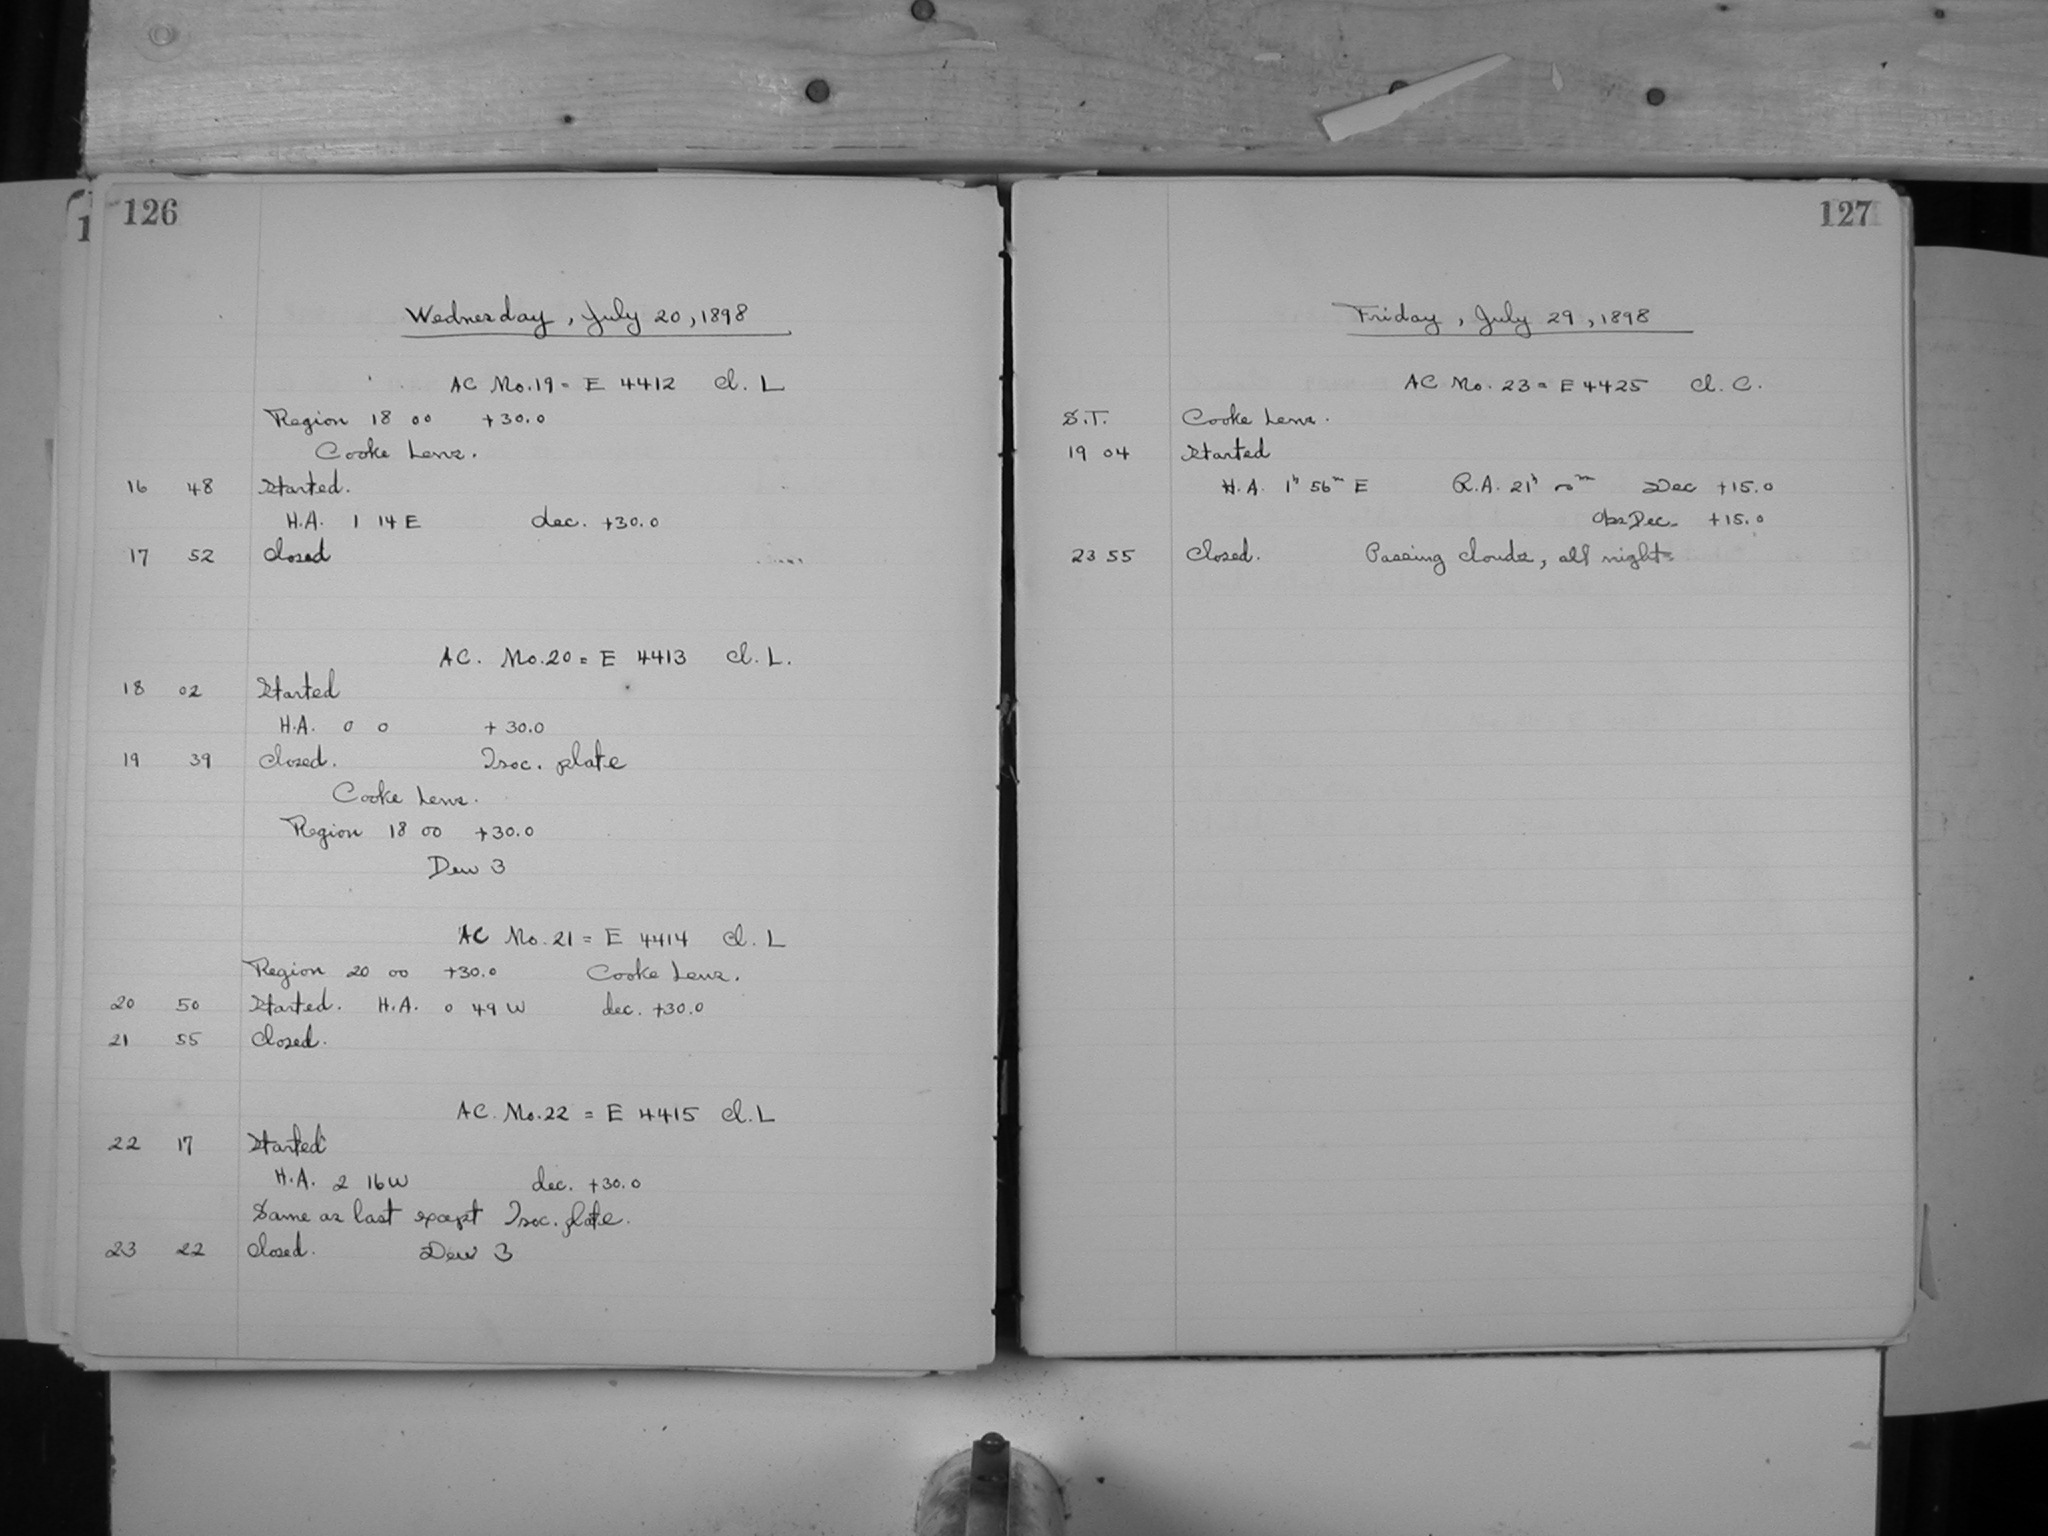 126
Wednesday, July 20, 1898
AC No. 19 = E 4412 Cl. L
Region 18 00 +30.0
Cooke Lens.
16 48 Started.
H.A. 1 14 E dec. +30.0
17 52 Closed
AC. No. 20 = E 4413 Cl. L.
18 02 Started
H.A. 0 0 +30.0
19 39 Closed. Isoc. plate
Cooke Lens.
Region 18 00 +30.0
Dew 3
AC No. 21 = E 4414 Cl. L
Region 20 00 +30.0 Cooke Lens.
20 50 Started. H.A. 0 49 W dec. +30.0
21 55 Closed.
AC. No. 22 = E 4415 Cl. L
22 17 Started
H.A. 2 16 W dec. +30.0
Same as last except Isoc. plate.
23 22 Closed. Dew 3
127
Friday, July 29, 1898
AC No. 23 = E 4425 Cl. C.
S.T. Cooke Lens.
19 04 Started
H.A. 1h 56m E R.A. 21h 00m Dec +15.0
Obs Dec. +15.0
23 55 Closed. Passing clouds, all night